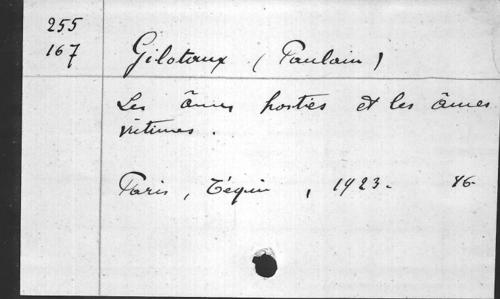 255
167
Giloteaux (Paulain)
Les âmes hosties et les âmes
victimes.
Paris, Téqui, 1923. 16-